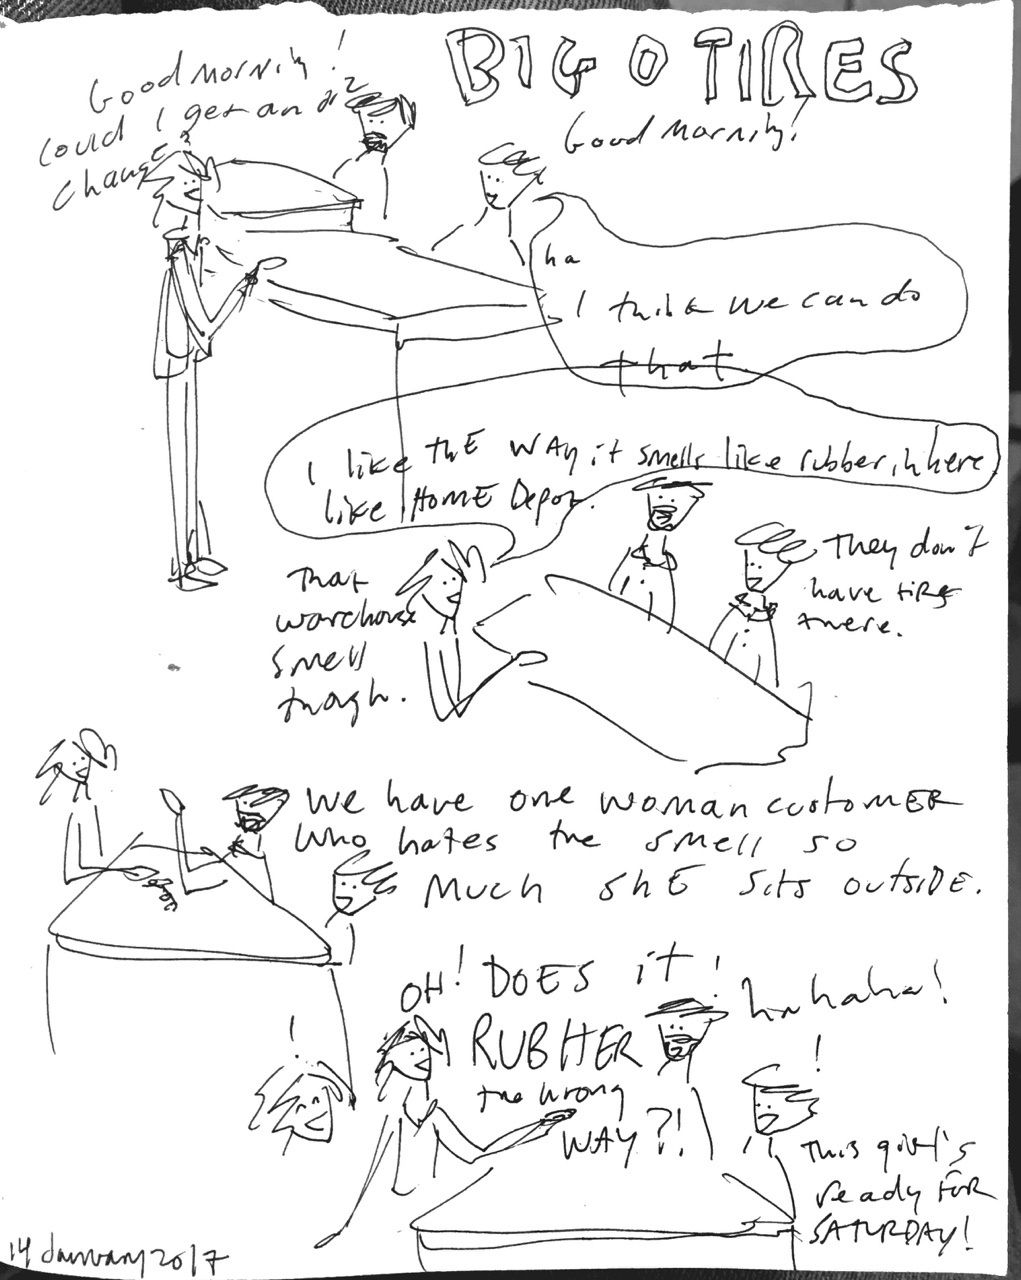 BIG O TIRES
Good Morning!
Could I get an oil
change?
Good Morning!
ha
I think we can do
that
I like thE WAy it smells like rubber in here
like HOME Depot.
That
warehouse
smell
though.
They don't
have tires
there.
We have one woman customER
Who hates the smell so
Much shE sits outsiDE.
OH! DOES it
RUB HER
the wrong
WAY?!
!
hahaha!
!
!
This girl's
ready FOR
SATURDAY!
14 January 2017